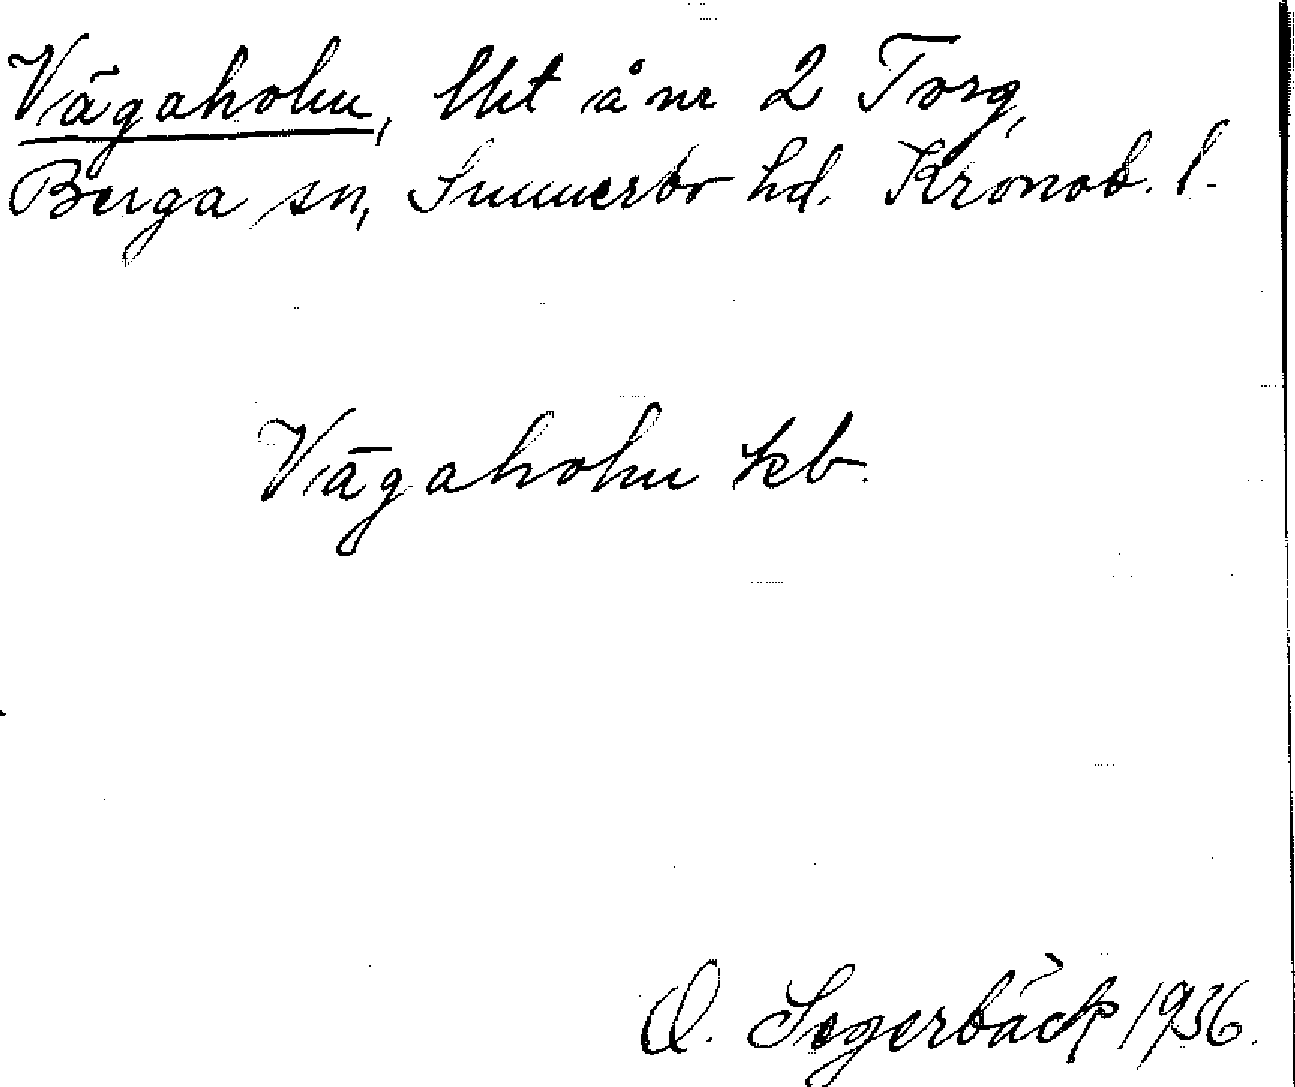 Vägaholm, lht å nr 2 Torg,
Berga sn, Sunnerbo hd. Kronob. l.
Vägaholm kb.
O. Segerbäck 1936.